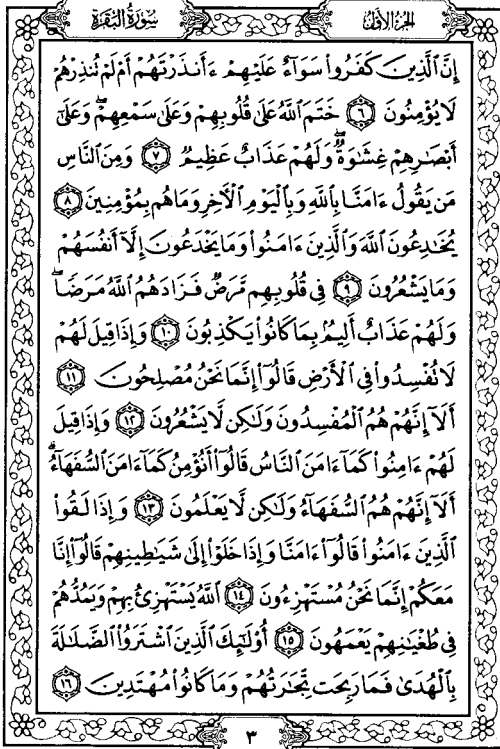 سُورَةُ البَقَرَةِ
الجُزءُ الأوّلُ
إِنَّ ٱلَّذِينَ كَفَرُوا۟ سَوَآءٌ عَلَيْهِمْ ءَأَنذَرْتَهُمْ أَمْ لَمْ تُنذِرْهُمْ
لَا يُؤْمِنُونَ ٦ خَتَمَ ٱللَّهُ عَلَىٰ قُلُوبِهِمْ وَعَلَىٰ سَمْعِهِمْ ۖ وَعَلَىٰٓ
أَبْصَٰرِهِمْ غِشَٰوَةٌ ۖ وَلَهُمْ عَذَابٌ عَظِيمٌ ٧ وَمِنَ ٱلنَّاسِ
مَن يَقُولُ ءَامَنَّا بِٱللَّهِ وَبِٱلْيَوْمِ ٱلْـَٔاخِرِ وَمَا هُم بِمُؤْمِنِينَ ٨
يُخَٰدِعُونَ ٱللَّهَ وَٱلَّذِينَ ءَامَنُوا۟ وَمَا يَخْدَعُونَ إِلَّآ أَنفُسَهُمْ
وَمَا يَشْعُرُونَ ٩ فِى قُلُوبِهِم مَّرَضٌ فَزَادَهُمُ ٱللَّهُ مَرَضًا ۖ
وَلَهُمْ عَذَابٌ أَلِيمٌۢ بِمَا كَانُوا۟ يَكْذِبُونَ ١٠ وَإِذَا قِيلَ لَهُمْ
لَا تُفْسِدُوا۟ فِى ٱلْأَرْضِ قَالُوٓا۟ إِنَّمَا نَحْنُ مُصْلِحُونَ ١١
أَلَآ إِنَّهُمْ هُمُ ٱلْمُفْسِدُونَ وَلَٰكِن لَّا يَشْعُرُونَ ١٢ وَإِذَا قِيلَ
لَهُمْ ءَامِنُوا۟ كَمَآ ءَامَنَ ٱلنَّاسُ قَالُوٓا۟ أَنُؤْمِنُ كَمَآ ءَامَنَ ٱلسُّفَهَآءُ ۗ
أَلَآ إِنَّهُمْ هُمُ ٱلسُّفَهَآءُ وَلَٰكِن لَّا يَعْلَمُونَ ١٣ وَإِذَا لَقُوا۟
ٱلَّذِينَ ءَامَنُوا۟ قَالُوٓا۟ ءَامَنَّا وَإِذَا خَلَوْا۟ إِلَىٰ شَيَٰطِينِهِمْ قَالُوٓا۟ إِنَّا
مَعَكُمْ إِنَّمَا نَحْنُ مُسْتَهْزِءُونَ ١٤ ٱللَّهُ يَسْتَهْزِئُ بِهِمْ وَيَمُدُّهُمْ
فِى طُغْيَٰنِهِمْ يَعْمَهُونَ ١٥ أُو۟لَٰٓئِكَ ٱلَّذِينَ ٱشْتَرَوُا۟ ٱلضَّلَٰلَةَ
بِٱلْهُدَىٰ فَمَا رَبِحَت تِّجَٰرَتُهُمْ وَمَا كَانُوا۟ مُهْتَدِينَ ١٦
٣